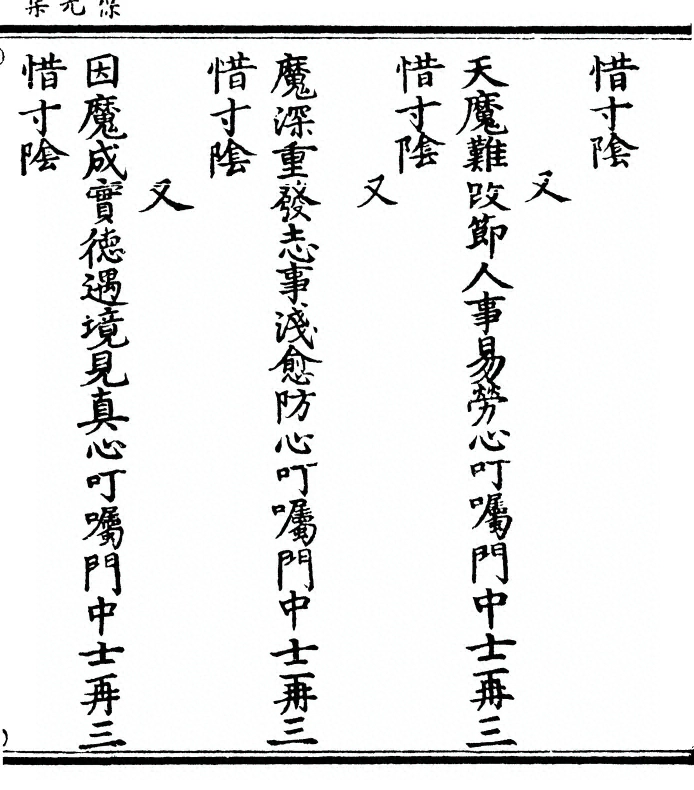 惜寸陰
又
天魔難改節人事易勞心叮囑門中士再三
惜寸陰
又
魔深重發志事淺愈防心叮囑門中士再三
惜寸陰
又
因魔成實德遇境見真心叮囑門中士再三
惜寸陰